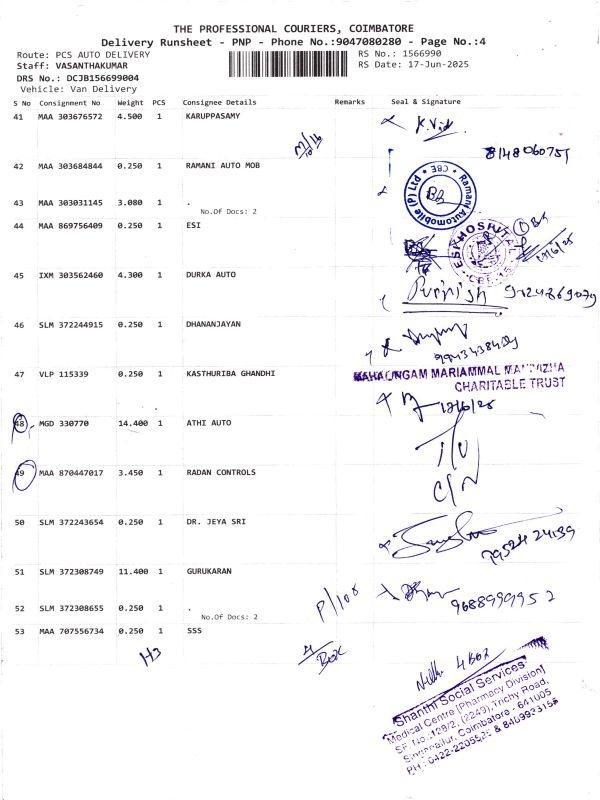 THE PROFESSIONAL COURIERS, COIMBATORE
Delivery Runsheet - PNP - Phone No.:9047080280 - Page No.:4
Route: PCS AUTO DELIVERY
RS No.: 1566990
Staff: VASANTHAKUMAR
RS Date: 17-Jun-2025
DRS No.: DCJB156699004
Vehicle: Van Delivery
S No Consignment No Weight PCS Consignee Details Remarks Seal & Signature
41 MAA 303676572 4.500 1 KARUPPASAMY
8148060751
42 MAA 303684844 0.250 1 RAMANI AUTO MOB
Ramani Automobile (P) Ltd * CBE *
43 MAA 303031145 3.080 1 .
No.Of Docs: 2
44 MAA 869756409 0.250 1 ESI
ESI HOSPITAL CBE-15
17/6/25
45 IXM 303562460 4.300 1 DURKA AUTO
9224869079
46 SLM 372244915 0.250 1 DHANANJAYAN
47 VLP 115339 0.250 1 KASTHURIBA GHANDHI
MARIAMMAL
CHARITABLE TRUST
17/6/25
48 MGD 330770 14.400 1 ATHI AUTO
49 MAA 870447017 3.450 1 RADAN CONTROLS
C/N
50 SLM 372243654 0.250 1 DR. JEYA SRI
51 SLM 372308749 11.400 1 GURUKARAN
P/108
9688999952
52 SLM 372308655 0.250 1 .
No.Of Docs: 2
53 MAA 707556734 0.250 1 SSS
H3
Box
4 Box
Shanthi Social Services
Medical Centre [Pharmacy Division]
SF. No.:128/2, (2249), Trichy Road,
Singanallur, Coimbatore - 641005